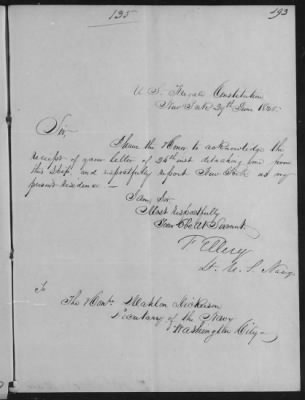 135
193
U.S. Frigate Constitution
New York 29th June 1835
Sir,
I have the Honor to acknowledge the
receipt of your letter of 24th inst detaching me from
this Ship, and respectfully report New York as my
present residence —
I am, Sir
Most respectfully
Your Obdt Servant
F Ellery
Lt. U.S. Navy
To
The Honl. Mahlon Dickerson
Secretary of the Navy
Washington City